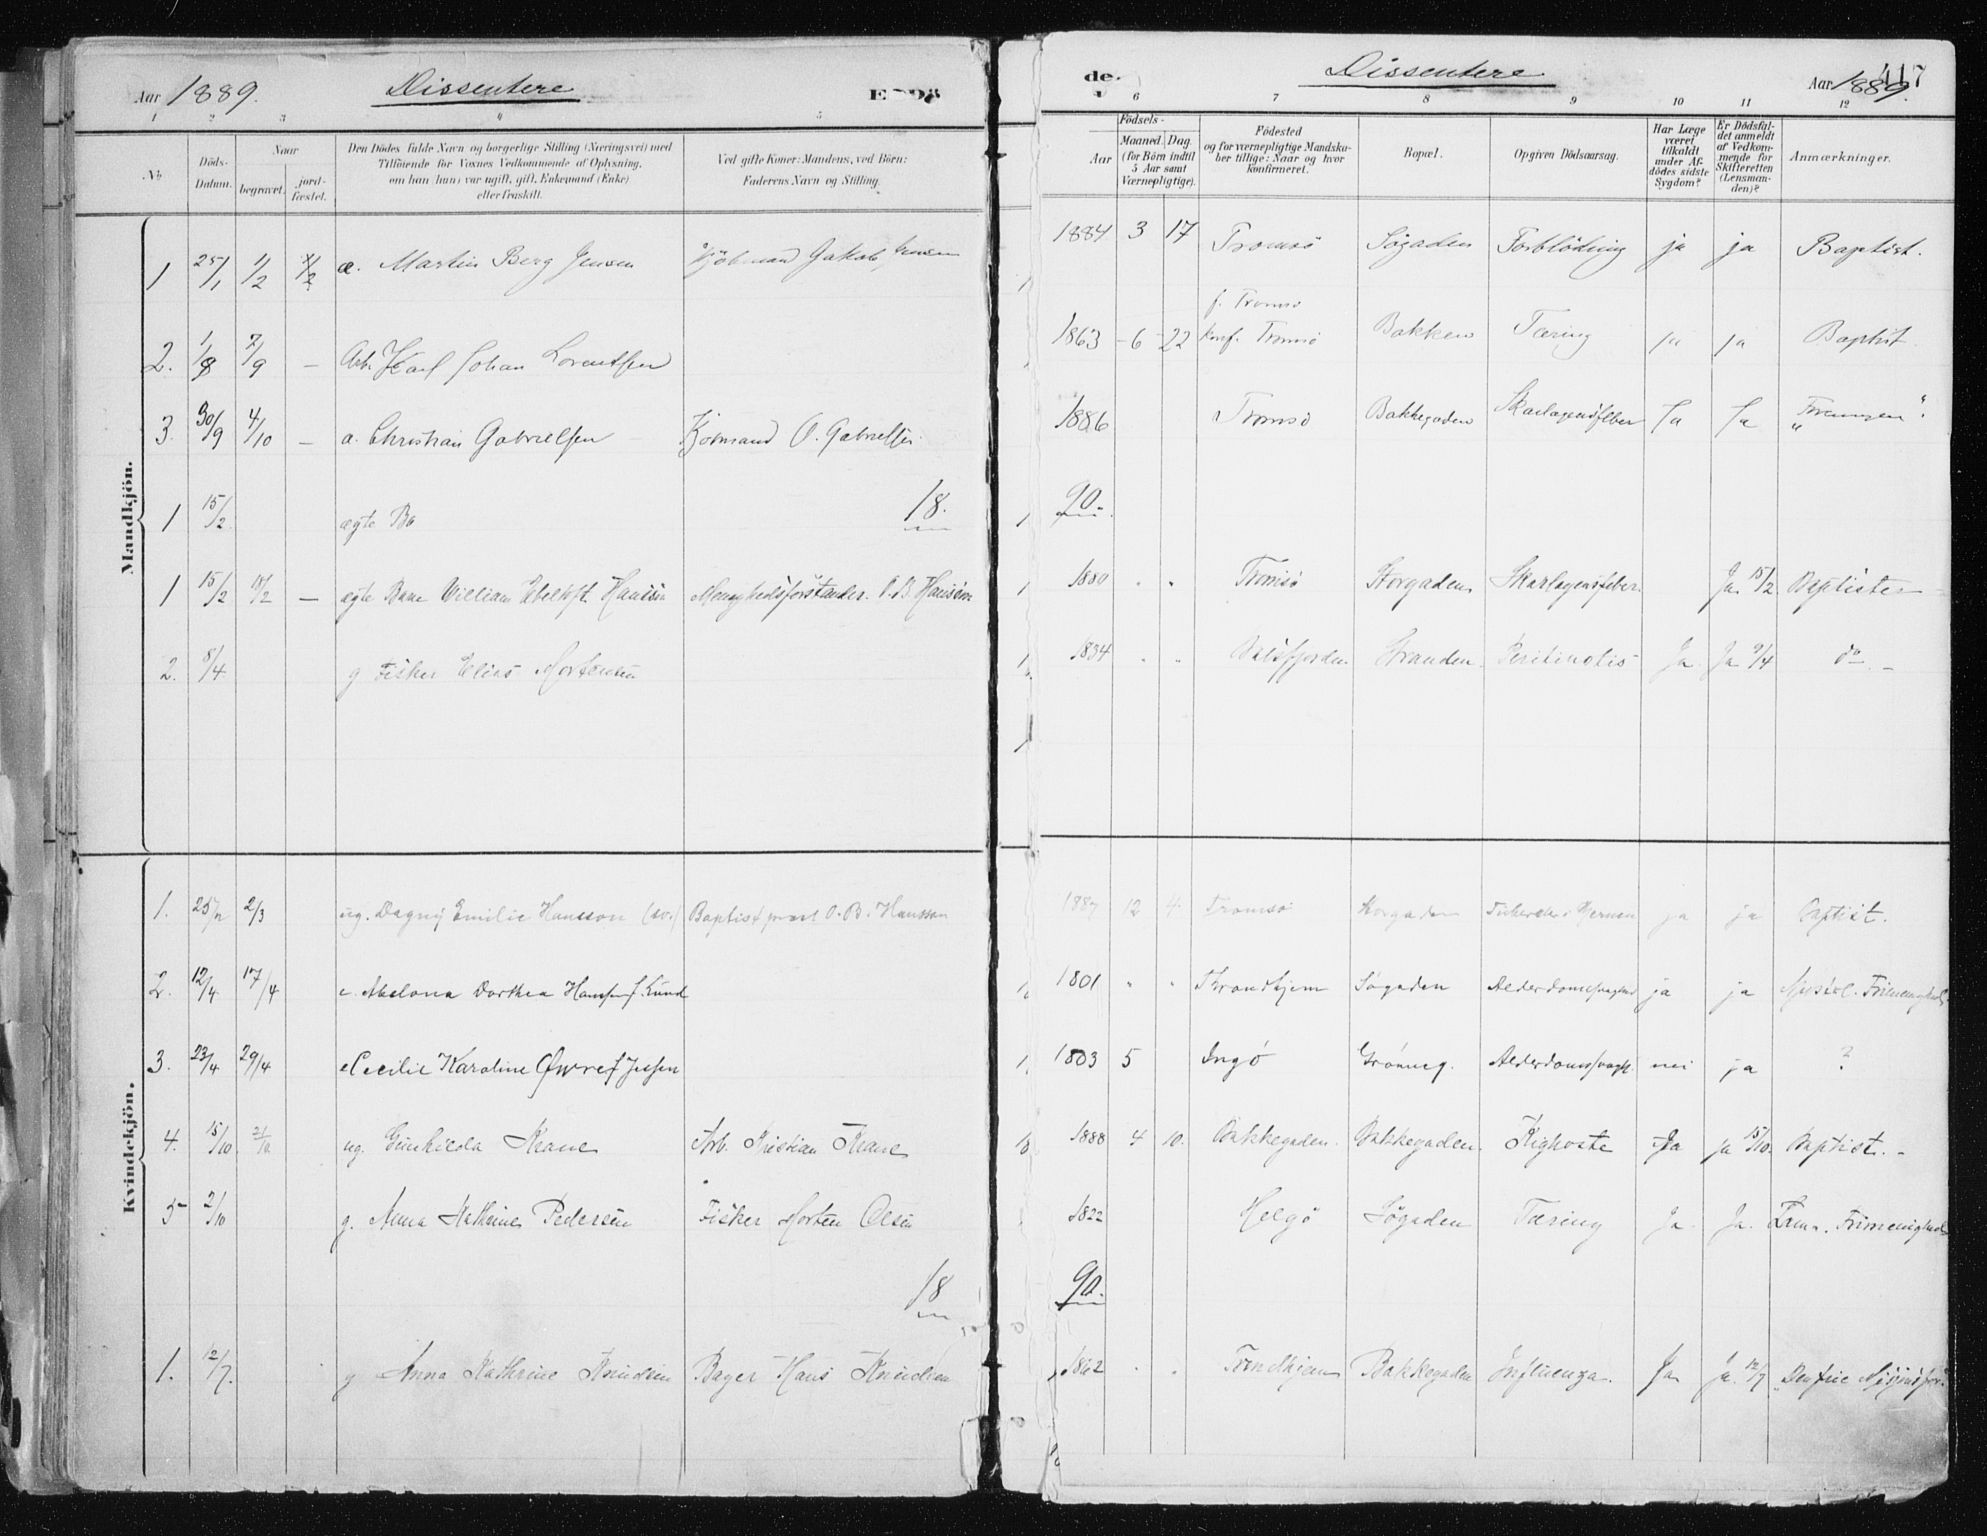 Aar 1889. Dissentere
de. Dissentere Aar 1889. 417
1 2 3 4 5 6 7 8 9 10 11 12
№ Döds-Datum. Naar begravet. jord-fæstet. Den Dödes fulde Navn og borgerlige Stilling (Næringsvei) med Tilföiende for Voxnes Vedkommende af Oplysning, om han (hun) var ugift, gift, Enkemand (Enke) eller fraskilt. Ved gifte Koner: Mandens, ved Börn: Faderens Navn og Stilling.
Aar Födsels- Maaned. Dag. (for Börn indtil 5 Aar samt Værnepligtige). Födested og for værnepligtige Mandskaber tillige: Naar og hvor konfirmeret. Bopæl. Opgiven Dödsaarsag. Har Læge været tilkaldt under Afdödes sidste Sygdom? Er Dödsfaldet anmeldt af Vedkommende for Skifteretten (Lensmanden)? Anmærkninger.
Mandkjön.
1 25/1 1/2 1/2 æ. Martin Berg Jensen Kjöbmand Jakob Jensen 1884 3 17 Tromsö Søgaden Forblödning ja ja Baptist.
2. 1/9 7/9 — Arb. Karl Johan Lorentsen 1863 - 6 - 22 f. Tromsö konf. Tromsö Bakken Tæring ja ja Baptist
3. 30/9 4/10 — a. Christian Gabrielsen Kjöbmand O. Gabrielsen 1886 Tromsö Bakkegaden Skarlagensfeber Ja Ja
1 15/2. ægte Ba 18. 90.
1 15/2 18/2 — ægte Barn William Hansson Menighedsforstander O. B. Hansson 1880 " " Tromsö Storgaden Skarlagensfeber Ja 15/2 Baptister
2. 8/4 g Fisker Elias Mortensen 1834 " " Balsfjorden Stranden Peritinotis Ja Ja 9/4 do —
Kvindekjön.
1. 25/2 2/3 ug. Dagny Emilie Hansson Baptistpræst O. B. Hansson 1887 12 4. Tromsö Storgaden ja ja Baptist.
2. 12/4 17/4 e. Abelona Dorthea Hansen f. Lund 1801 " " Throndhjem Søgaden Alderdomssvaghed ja ja
3. 23/4 29/4 e Cecilie Karoline f. Jessen 1803 5 Ingö Grönneg. Alderdomssvagh. nei ja ?
4. 15/10 21/10 ug. Gunhilda Krane Arb. Kristian Krane 1888 4 10. Bakkegaden. Bakkegaden. Kighoste Ja ja 15/10. Baptist. —
5 2/10 g. Anna Kathrine Pedersen Fisker Morten Olsen 1822 Helgö Søgaden Tæring Ja. Ja. Frimenighed
18 90.
1. 12/7. g Anna Kathrine Knudsen Bager Hans Knudsen 1862 " " Trondhjem Bakkegaden Influenza. Ja Ja. 12/7